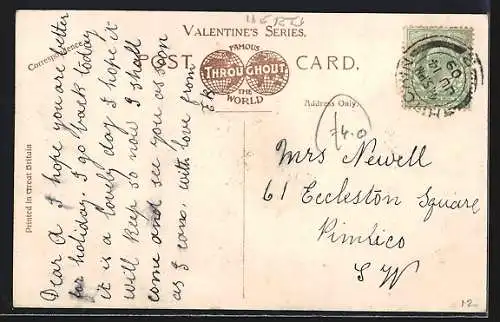 VALENTINE'S SERIES.
POST CARD.
FAMOUS
THROUGHOUT
THE WORLD
Correspondence.
Address Only.
Printed in Great Britain
Dear A I hope you are better
for holiday. I go back today
it is a lovely day I hope it
will keep so now I shall
come and see you as soon
as I com. with love from
Mrs Newell
61 Eccleston Square
Pimlico
S W
12